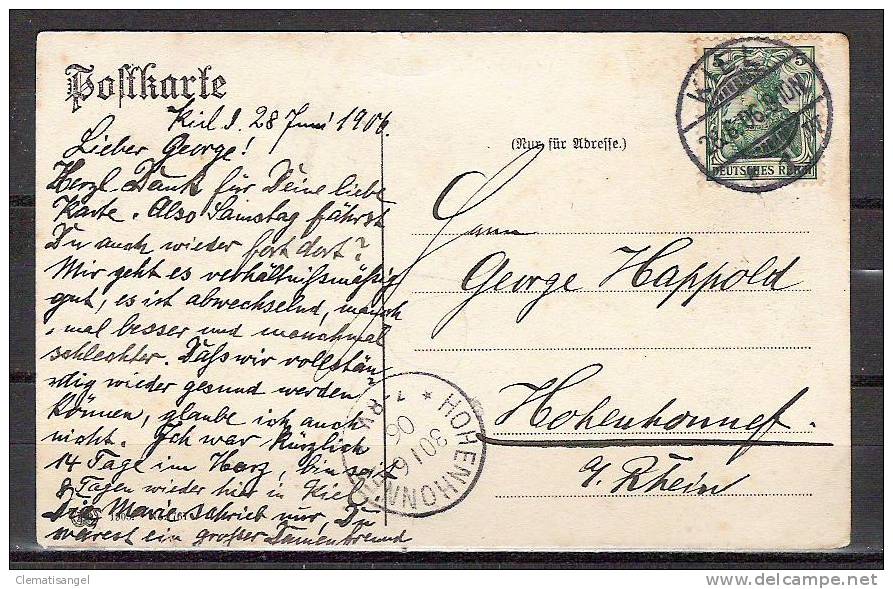 Postkarte
Kiel d. 28 Juni 1906.
Lieber George!
Herzl. Dank für Deine liebe
Karte. Also Samstag fährst
Du auch wieder fort dort?
Mir geht es verhältnißmäßig
gut, es ist abwechselnd, manch
mal besser und manchmal
schlechter. Daß wir vollstän-
dig wieder gesund werden
können, glaube ich auch
nicht. Ich war kürzlich
14 Tage im Harz, bin seit
8 Tagen wieder hier in Kiel
Die Marie schrieb nur, Du
wärest ein großer Damenfreund
1905.
(Nur für Adresse.)
Herrn
George Happold
Hohenhonnef
a/ Rhein
5 5
DEUTSCHES REICH
KIEL
28.6.06.
HOHENHONNEF
30 6
06
Clematisangel
www.delcampe.net